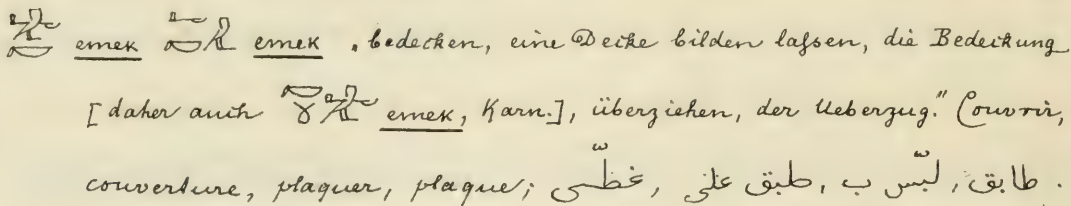 emek emek „bedecken, eine Decke bilden laſsen, die Bedeckung
[daher auch emek, Karn.], überziehen, der Ueberzug." Couvrir,
couverture, plaquer, plaque; طابق, لبّس ب, طبق على, غطّى.